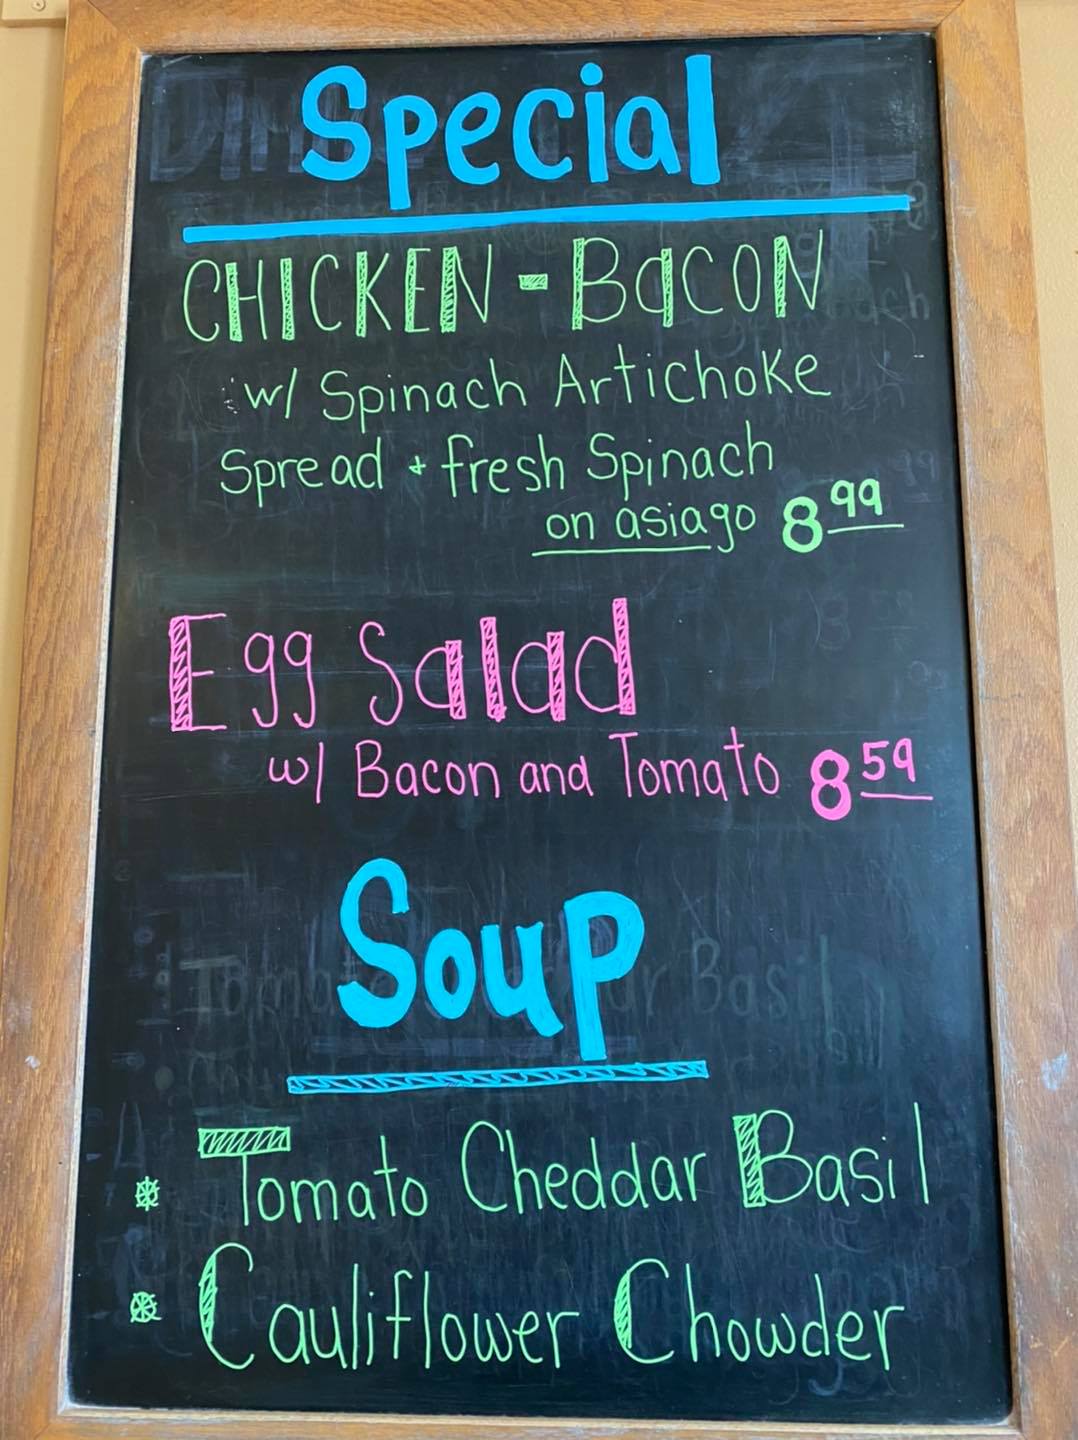 Special
CHICKEN - BacON
w/ Spinach Artichoke
Spread + fresh Spinach
on asiago 8 99
Egg Salad
w/ Bacon and Tomato 8 59
Soup
Tomato Cheddar Basil
Cauliflower Chowder